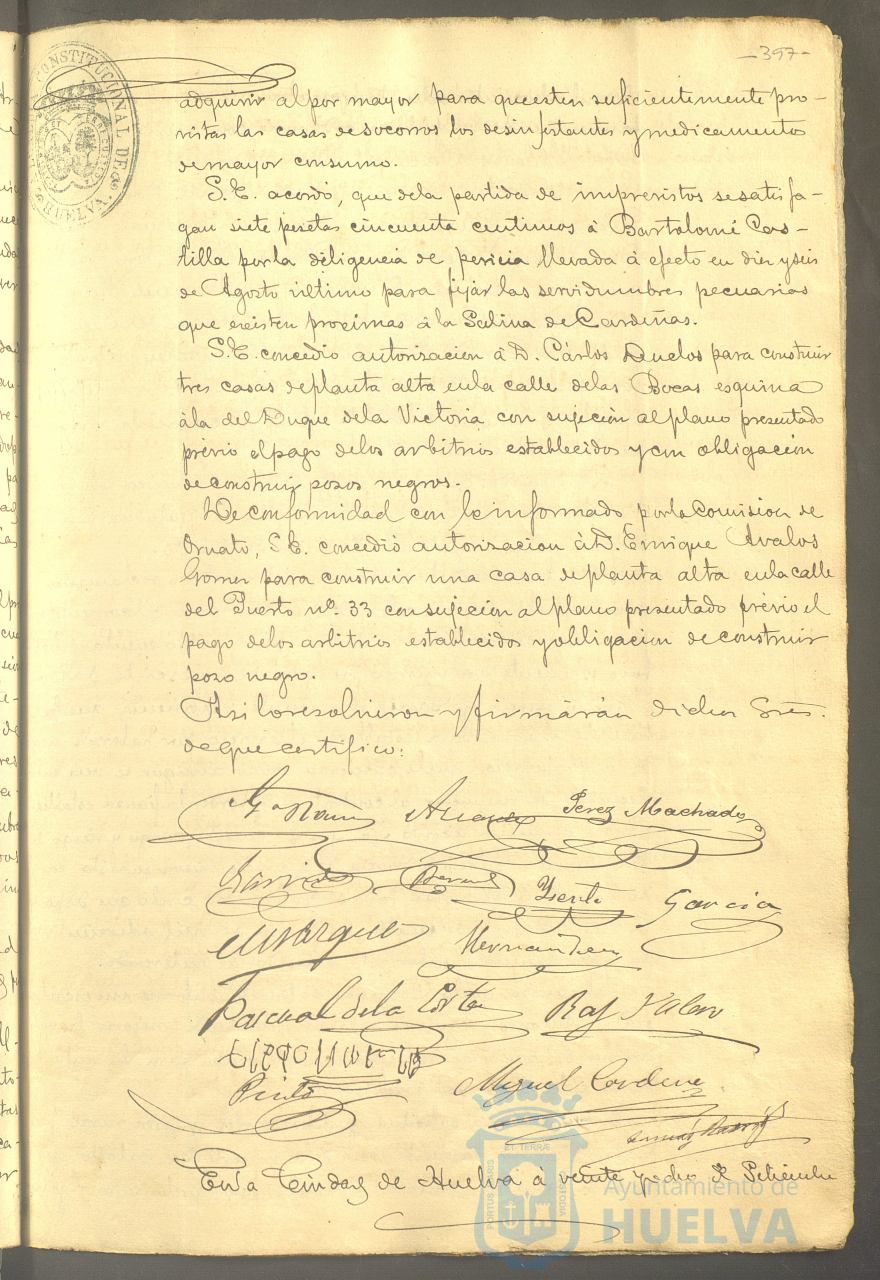 -397-
CONSTITUCIONAL DE HUELVA
adquirir al por mayor para que esten suficientemente pro-
vistas las casas de socorros los desinfectantes y medicamentos
de mayor consumo.
S.E. acordó, que de la partida de imprevistos se satisfa-
gan siete pesetas cincuenta centimos á Bartolomé Cas-
tilla por la diligencia de pericia llevada á efecto en diez y seis
de Agosto último para fijar las servidumbres pecuarias
que existen proximas á la Salina de Cardeñas.
S.E. concedio autorizacion á D. Cárlos Duclos para construir
tres casas de planta alta en la calle de las Bocas esquina
á la del Duque de la Victoria con sujeción al plano presentado
prévio el pago de los arbitrios establecidos y con obligación
de construir pozos negros.
De conformidad con lo informado por la Comision de
Ornato, S.E. concedió autorizacion á D. Enrique Avalos
Gomez para construir una casa de planta alta en la calle
del Puerto nº. 33 con sujeción al plano presentado prévio el
pago de los arbitrios establecidos y obligacion de construir
pozo negro.
Asi lo resolvieron y firmarán dichos Sres.
de que certifico:
Perez Machado
Garcia
Marquez Hernandez
Pascual de la Corte
Pinto Miguel
En la Ciudad de Huelva á veinte y dos de Setiembre
PORTUS MARIS ET TERRÆ CUSTODIA
Ayuntamiento de
HUELVA